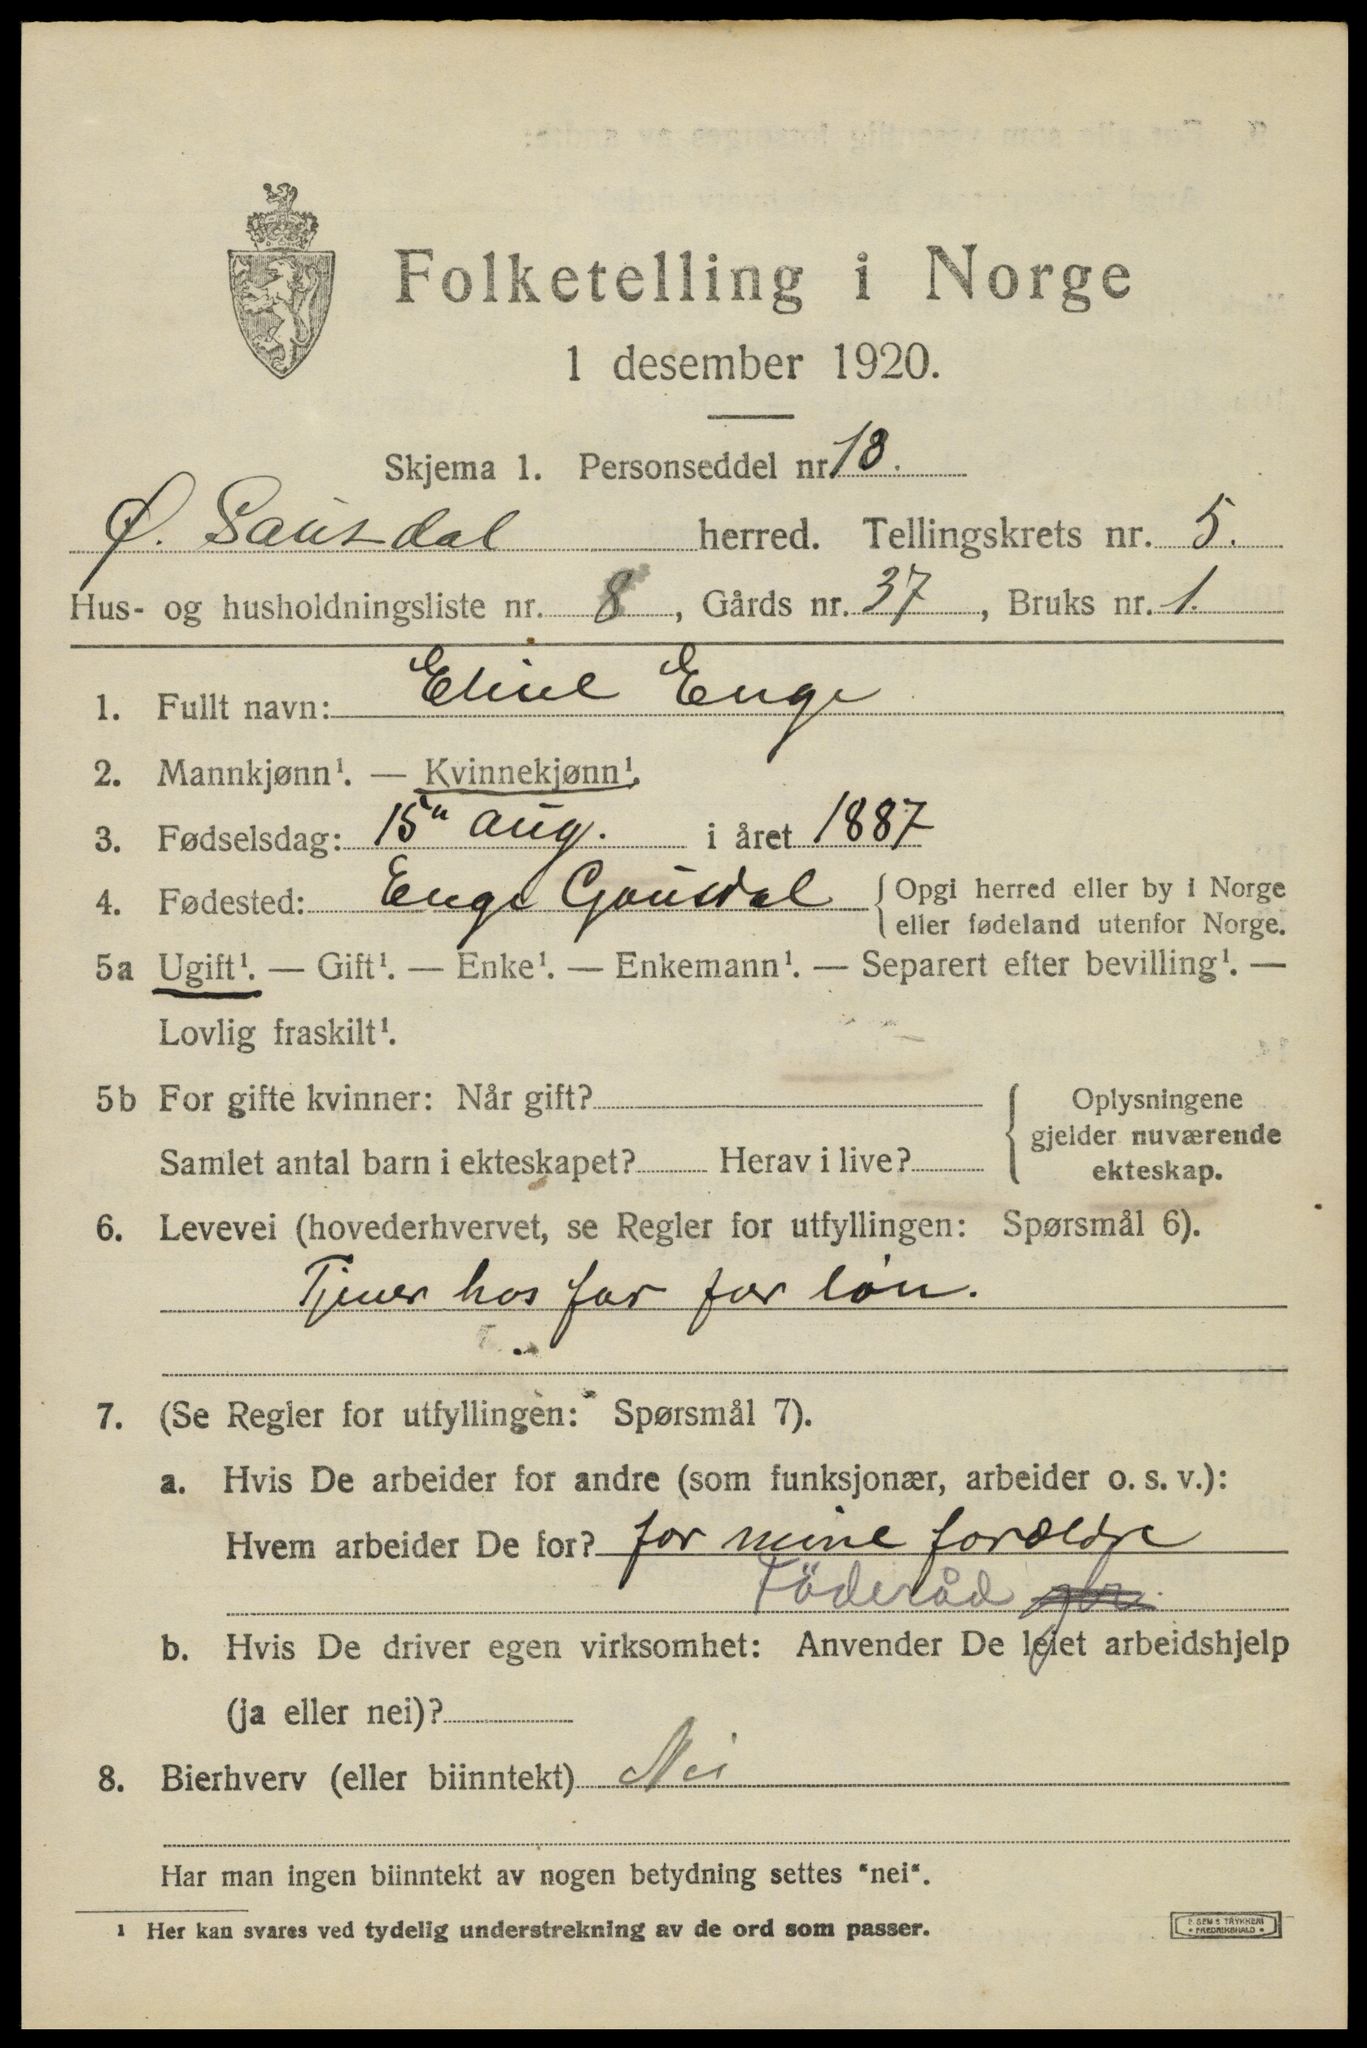 Folketelling i Norge
1 desember 1920.
Skjema 1. Personseddel nr 18.
Ø. Gausdal herred. Tellingskrets nr. 5.
Hus- og husholdningsliste nr. 8, Gårds nr. 37, Bruks nr. 1.
1. Fullt navn: Eline Enge
2. Mannkjønn¹. — Kvinnekjønn¹.
3. Fødselsdag: 15" aug. i året 1887
4. Fødested: Enge Gausdal { Opgi herred eller by i Norge
eller fødeland utenfor Norge.
5a Ugift¹. — Gift¹. — Enke¹. — Enkemann¹. — Separert efter bevilling¹. —
Lovlig fraskilt¹.
5b For gifte kvinner: Når gift? { Oplysningene
gjelder nuværende
Samlet antal barn i ekteskapet? Herav i live? ekteskap.
6. Levevei (hovederhvervet, se Regler for utfyllingen: Spørsmål 6).
Tjener hos far for løn.
7. (Se Regler for utfyllingen: Spørsmål 7).
a. Hvis De arbeider for andre (som funksjonær, arbeider o. s. v.):
Hvem arbeider De for? for mine forældre
Föderåd
b. Hvis De driver egen virksomhet: Anvender De leiet arbeidshjelp
(ja eller nei)?
8. Bierhverv (eller biinntekt) Nei
Har man ingen biinntekt av nogen betydning settes "nei".
¹ Her kan svares ved tydelig understrekning av de ord som passer.
E. SEM'S TRYKKERI
FREDRIKSHALD